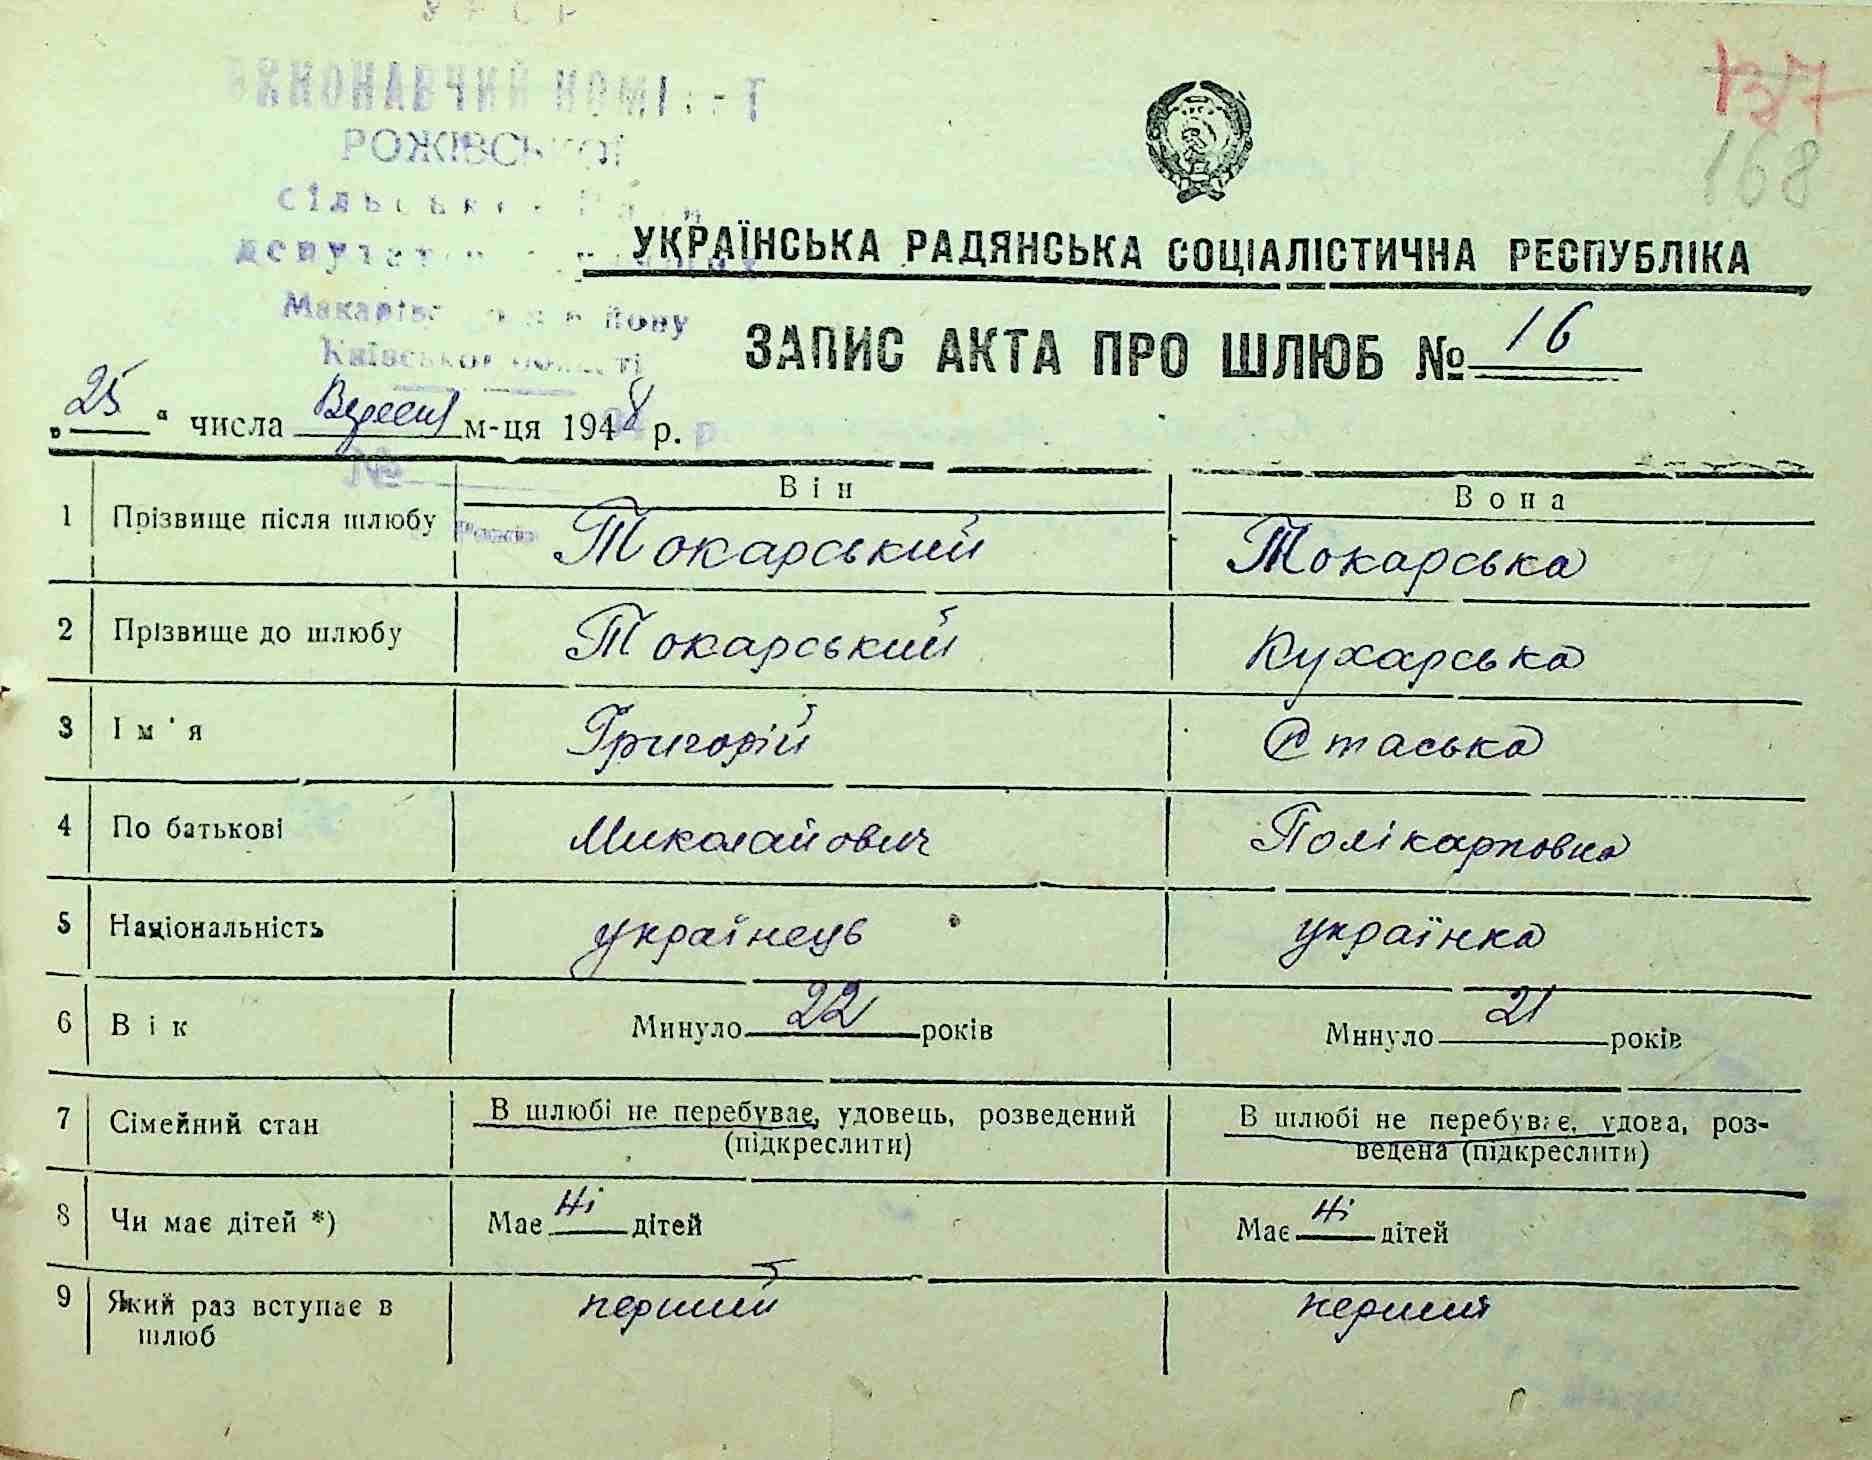 УРСР
ВИКОНАВЧИЙ КОМІТЕТ
РОЖІВСЬКОЇ
сільської Ради
депутатів
Макарівського району
Київської області
137
168
УКРАЇНСЬКА РАДЯНСЬКА СОЦІАЛІСТИЧНА РЕСПУБЛІКА
ЗАПИС АКТА ПРО ШЛЮБ № 16
„25“ числа Вересня м-ця 1948 р.
№
Він Вона
1 Прізвище після шлюбу Токарський Токарська
2 Прізвище до шлюбу Токарський Кухарська
3 Ім'я Григорій Стаська
4 По батькові Миколайович Полікарповна
5 Національність українець українка
6 Вік Минуло 22 років Минуло 21 років
7 Сімейний стан В шлюбі не перебуває, удовець, розведений В шлюбі не перебуває, удова, роз-
(підкреслити) ведена (підкреслити)
8 Чи має дітей *) Має Ні дітей Має Ні дітей
9 Який раз вступає в перший перший
шлюб